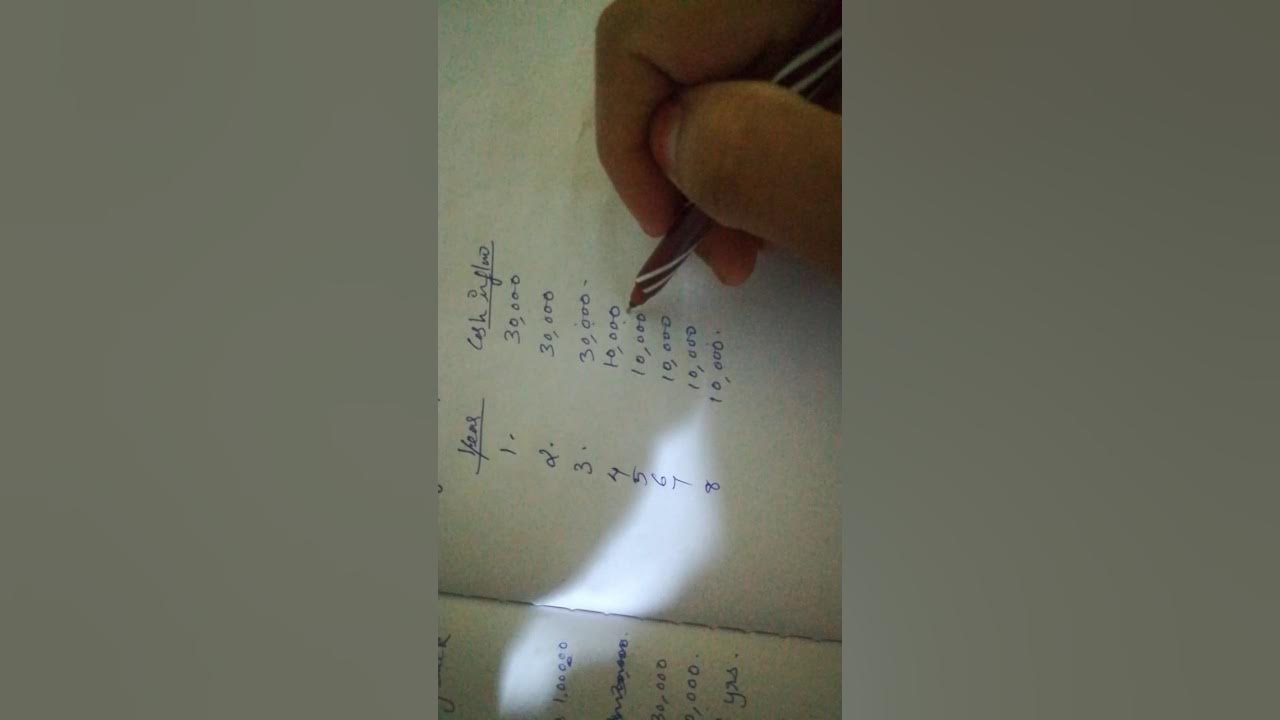 Year Cash inflow
1. 30,000
2. 30,000
3. 30,000.
4 10,000
5 10,000
6 10,000
7 10,000
8 10,000.
1,00000
30,000
0,000.
yrs.